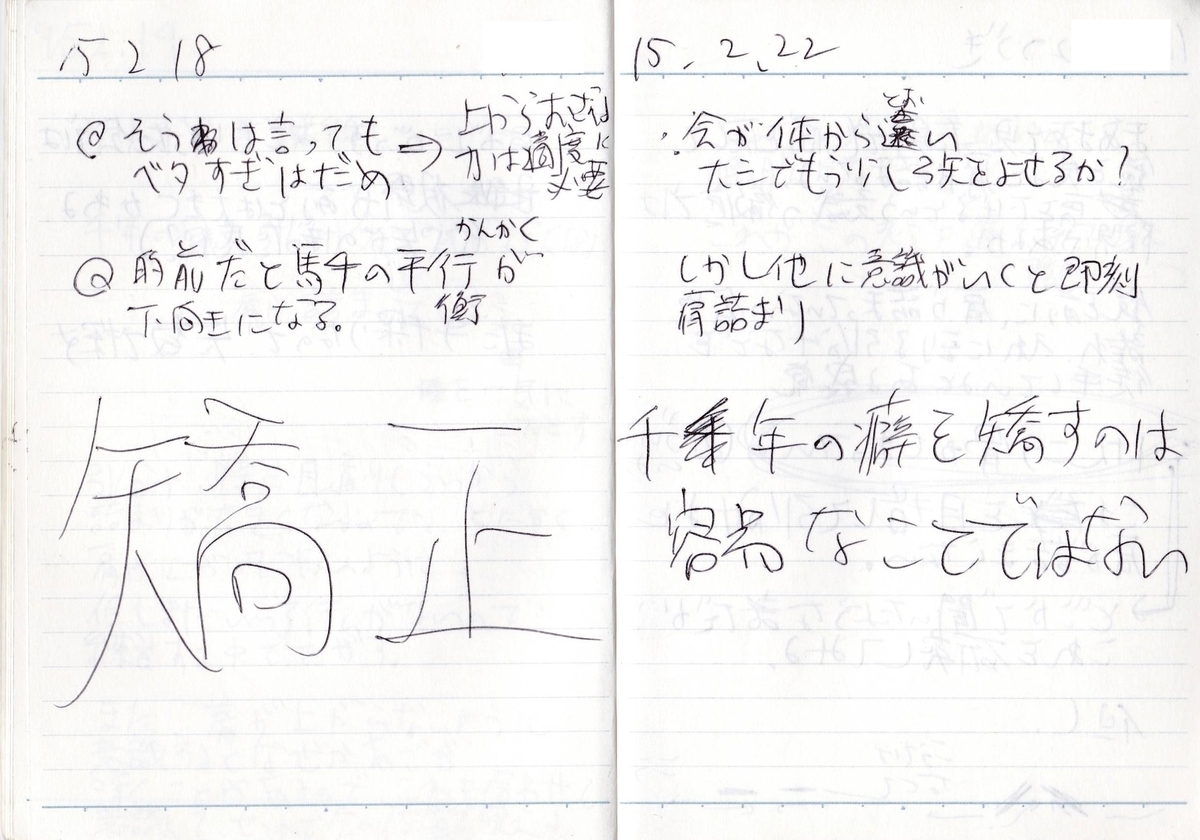 15 2 18
@ そうは言っても ⇒ 上からおせば
ベタすぎはだめ 力は適度に
必要
かんかく
@ 的前だと馬手の平行が
衡
下向きになる。
矯正
15. 2. 22
・会が体から遠い
とお
大三でもう少し弓矢をよせるか?
しかし他に意識がいくと即刻
肩詰まり
千年の癖を矯すのは
容易なことではない